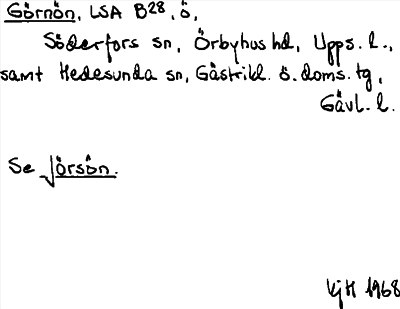 Görnön, LSA B28, ö,
Söderfors sn, Örbyhus hd, Upps. l.,
samt Hedesunda sn, Gästrikl. ö. doms. tg,
Gävl. l.
Se Jörsön.
KjH 1968